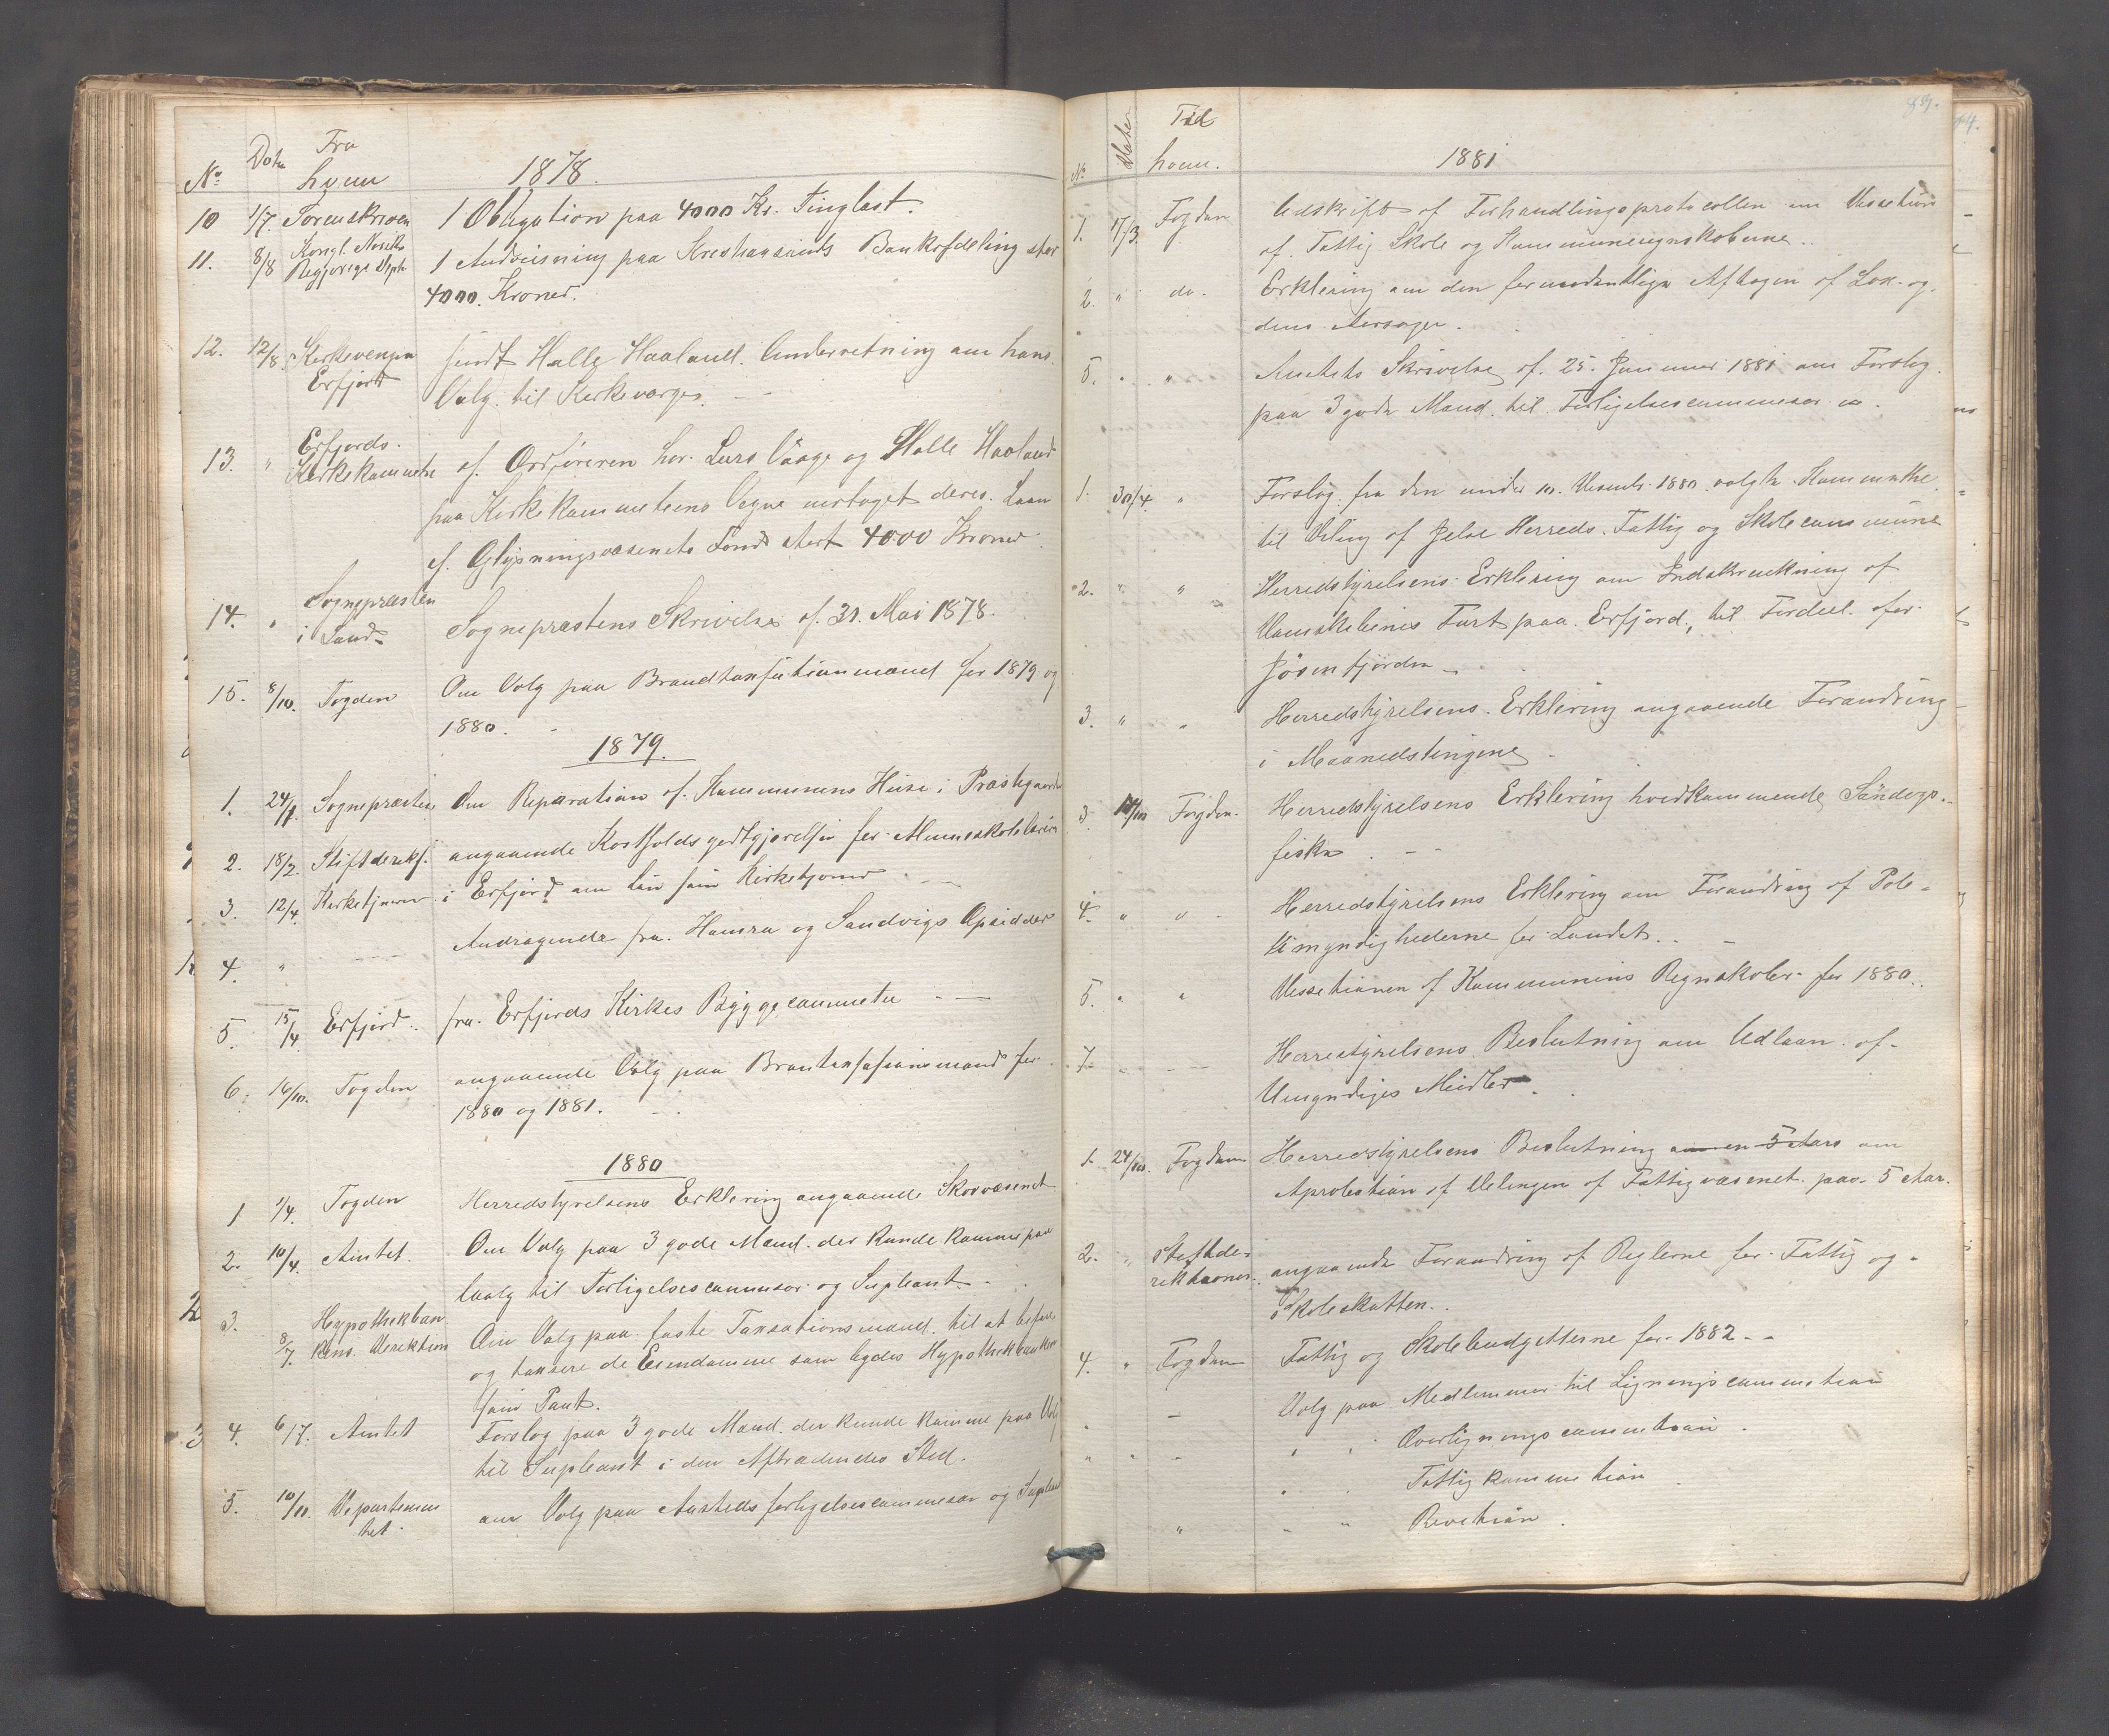 No Dato Fra hvem 1878.
10 1/7. Sorenskriven 1 Obligation paa 4000 Kr. Tinglæst.
11. 8/8 Kongl. Norske Regjerings Dept. 1 Andvisning paa Bankafdeling stor
4000. Kroner.
12. 12/8. Kirkevergen Erfjord sendt Halle Haaland. Underretning om hans
Valg. til Kirkeverge.
13. " Erfjords. Kirkekommete af. Ordføreren har. Lars Vaage og Halle Haaland
paa Kirkekommeteens Vegne mottaget deres. Laan
af. Oplysningsvæsenets Fond stort 4000 Kroner.
14. " Sognepræsten i Sand Sognepræstens Skrivelse af. 31. Mai 1878.
15. 8/10. Fogden Om Valg paa Brandtaxsationmænd for 1879 og
1880.
1879.
1. Sognepræsten Om Reparation af. Kommunens Huse i Præstegaarden
2. 18/2. Stiftdireks. angaaende Kostholdsgodtgjørelse for
3. 12/4. Kirketjener i Erfjord om Løn som Kirketjener
4. " Andragende fra. Hamra og Sandvigs Opsidder
5. 15/4. Erfjord.. fra. Erfjords Kirkes Byggecommete
6. 16/10. Fogden angaaende Valg paa for.
1880 og 1881.
1880
1 1/4. Fogden Herredstyrelsens Erklering angaaende Skovvæsenet
2. 10/4. Amtet. Om Valg paa 3 gode Mænd. der kunde komme paa
Valg til Forligelsescommisær og Supleant.
3. 8/7. Hypothekbankens. Direktion Om Valg paa faste Taxationsmænd. til at
og taxsere de Eiendomme som bydes Hypothekbanken
som Pant.
4. 6/7. Amtet Forslag paa 3 gode Mænd. der kunde komme paa Valg
til Supleant i den Aftrædendes Sted.
5. 10/10. Departementet. om Valg paa forligelsescommesær og
No Dato Til hvem. 1881
1. 17/3. Fogden Udskrift af Forhandlingsprotocollen om Dessetion
af. Fattig Skole og Kommuneregnskaberne..
2. " do. Erklering om den Aftagen af Lax- og.
5. " " Amtets Skrivelse af. 25. Januar 1881 om Forslag.
paa 3 gode Mænd. til Forligelsescommesær.
1. 30/4 " Forslag. fra den under 10. Desembr. 1880. valgte Kommitte.
til Deling af Jelse Herreds. Fattig og Skolecommune
2. " " Herredstyrelsens Erklering om Indskrenkning af
Damskibenes Fart paa. Erfjord., til Fordeel. for.
Jøsenfjorden
3. " " Herredstyrelsens. Erklering angaaende Forandring
i Maanedstingene
3. Fogden. Herredstyrelsens Erklering hvedkommende Søndags.
fiske.
4. " " Herredstyrelsens Erklering om Forandring af Poletimyndighederne for Landet.
5. " " Dessetionen af Kommunens Regnskaber. for 1880..
7. Herrestyrelsens Beslutning om Udlaan. af.
Umyndiges Midler.
1. 24/10. Fogden Herredstyrelsens Beslutning om en 5 Aars om
Aprobation af Delingen af Fattigvæsenet. paa. 5 Aar.
2. " Stiftderektionen. angaaende Forandring af Reglerne for. Fattig og.
Skoleskatten..
4. " Fogden Fattig og Skolebudgetterne for. 1882
Valg paa Medlemmer til Ligningscommetion
" " Overligningscommetion.
" " Fattigkommetion
" " " Revetion.